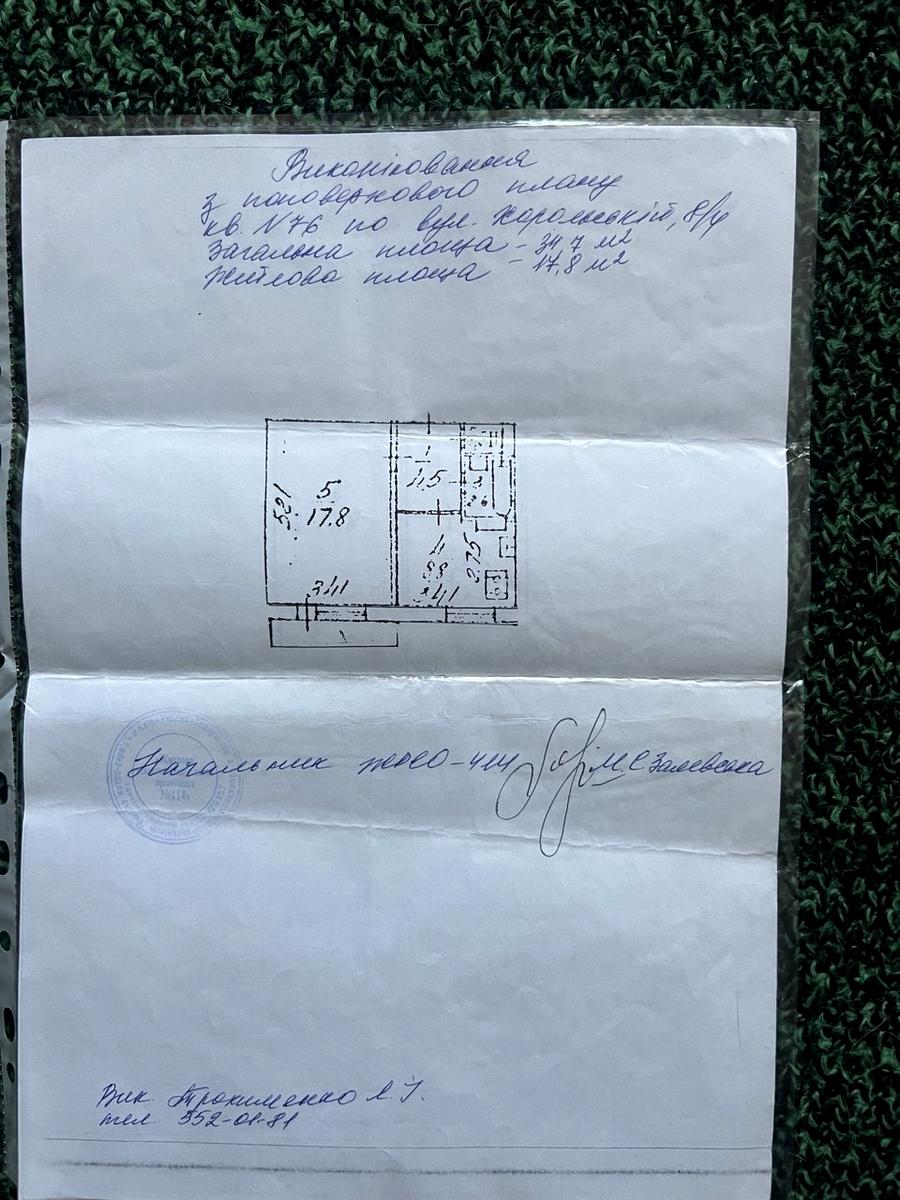 Викопіювання
з поповерхового плану
кв. N 76 по вул. Харольській, 8/4
Загальна площа - 34,7 м2
Житлова площа - 17,8 м2
1
4,5
5
17.8
521
275
4
8.8
341
241
1
№414
Начальник ЖЕО-414 М.С Залевська
Вик. Трохименко Л.І.
тел. 552-01-81